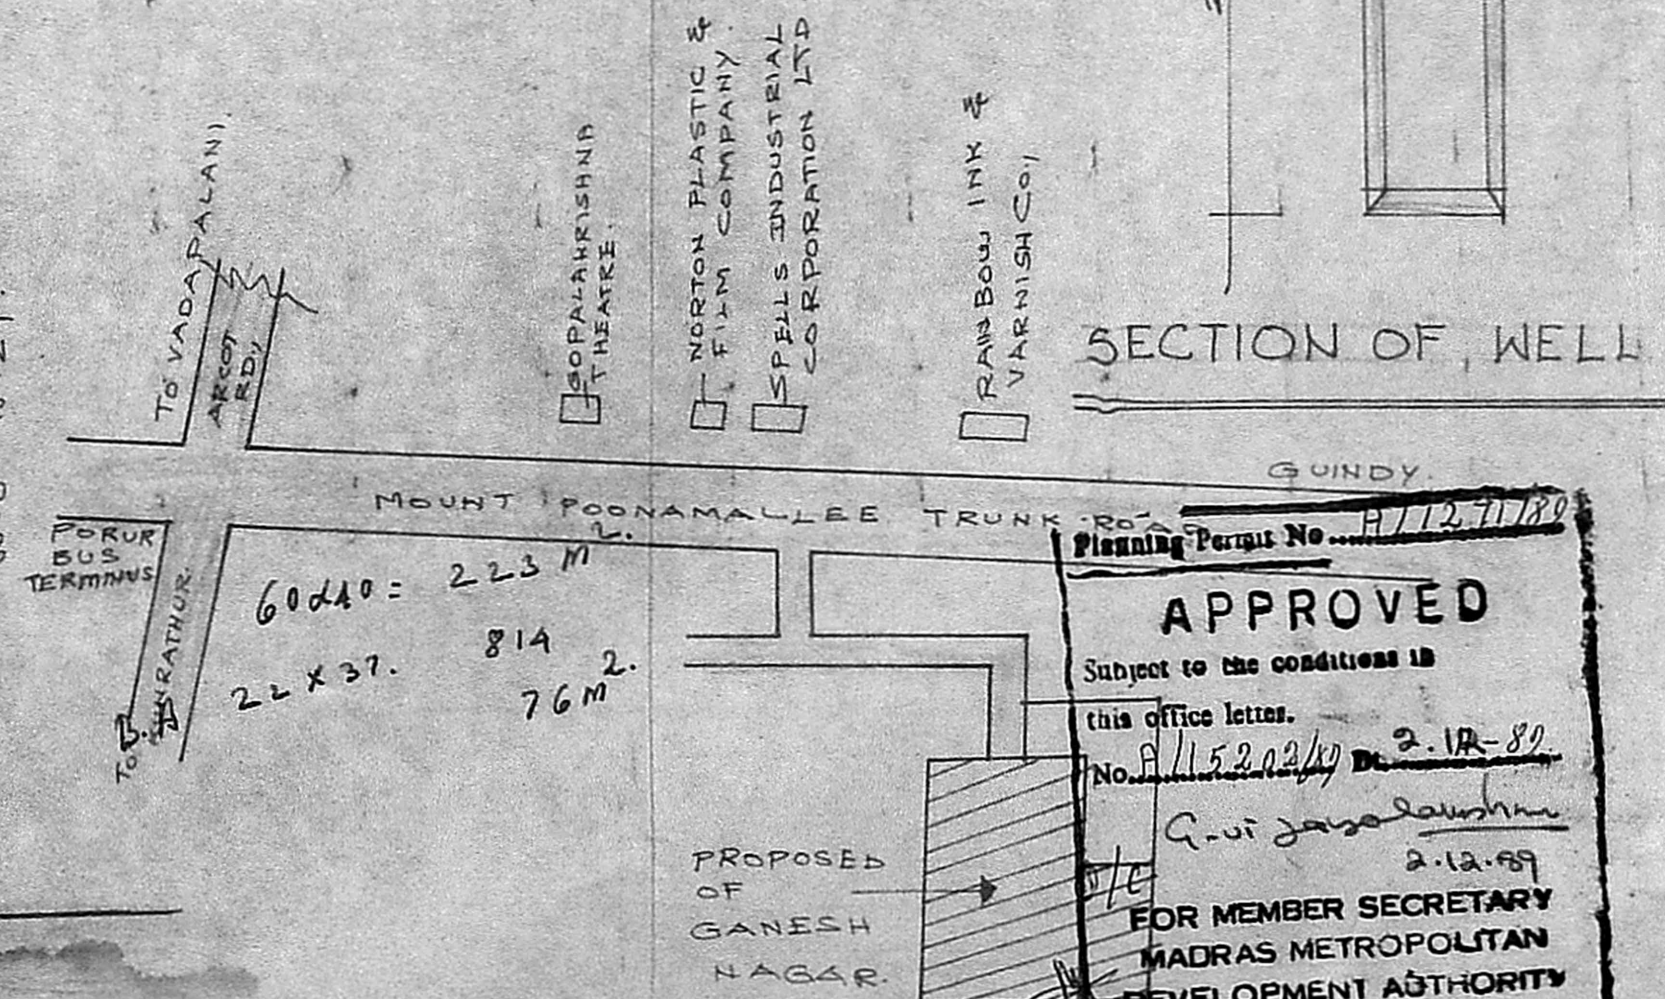 TO VADAPALANI.
ARCOT
RD.,
GOPALAKRISHNA
THEATRE.
NORTON PLASTIC &
FILM COMPANY.
SPELLS INDUSTRIAL
CORPORATION LTD
RAINBOW INK &
VARNISH Co.,
SECTION OF WELL
GUINDY.
MOUNT POONAMALLEE TRUNK ROAD
PORUR
BUS
TERMINUS
60 = 223 M2.
22 x 37. 814
76 M2.
Planning Permit No
APPROVED
Subject to the conditions in
this office letter.
No. A/15202/89 Dt. 2.12-89.
2.12.89
FOR MEMBER SECRETARY
MADRAS METROPOLITAN
DEVELOPMENT AUTHORITY
PROPOSED
OF
GANESH
NAGAR.